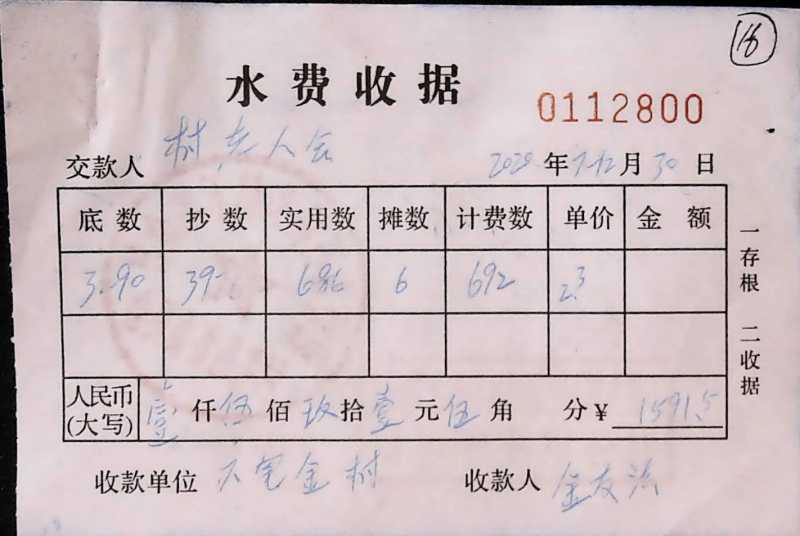 16
水费收据
0112800
交款人 村老人会 2020年7-12月30日
底数 抄数 实用数 摊数 计费数 单价 金额
3.90 39 686 6 692 2.3
人民币(大写) 壹仟伍佰玖拾壹元伍角 分¥ 1591.5
收款单位 下宅金村 收款人 金友法
一存根 二收据